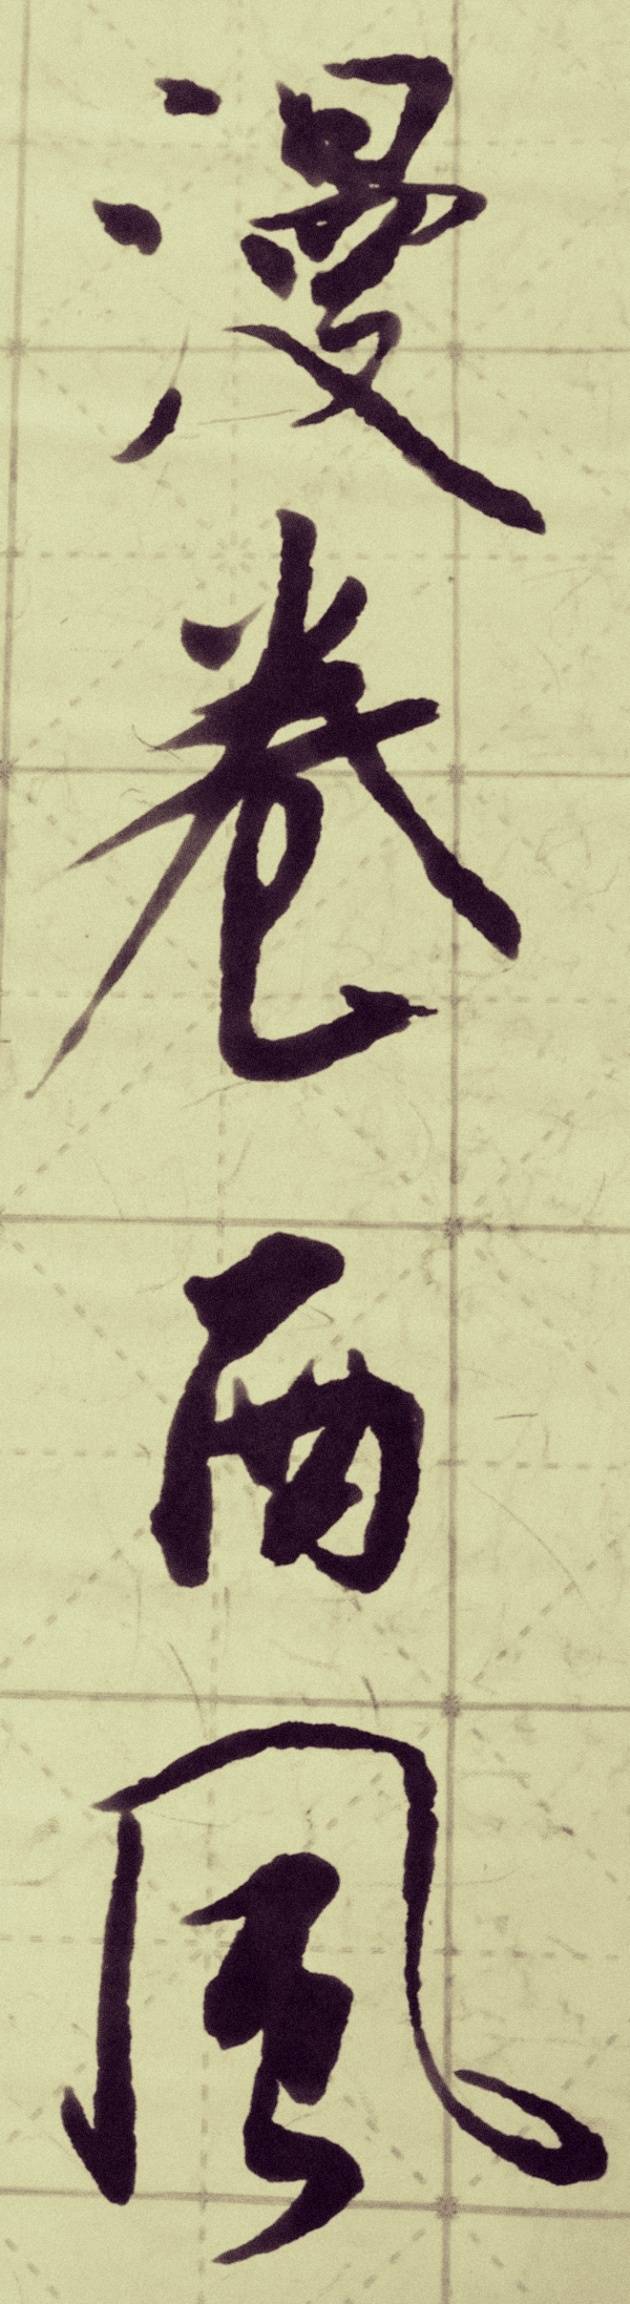 漫卷西風